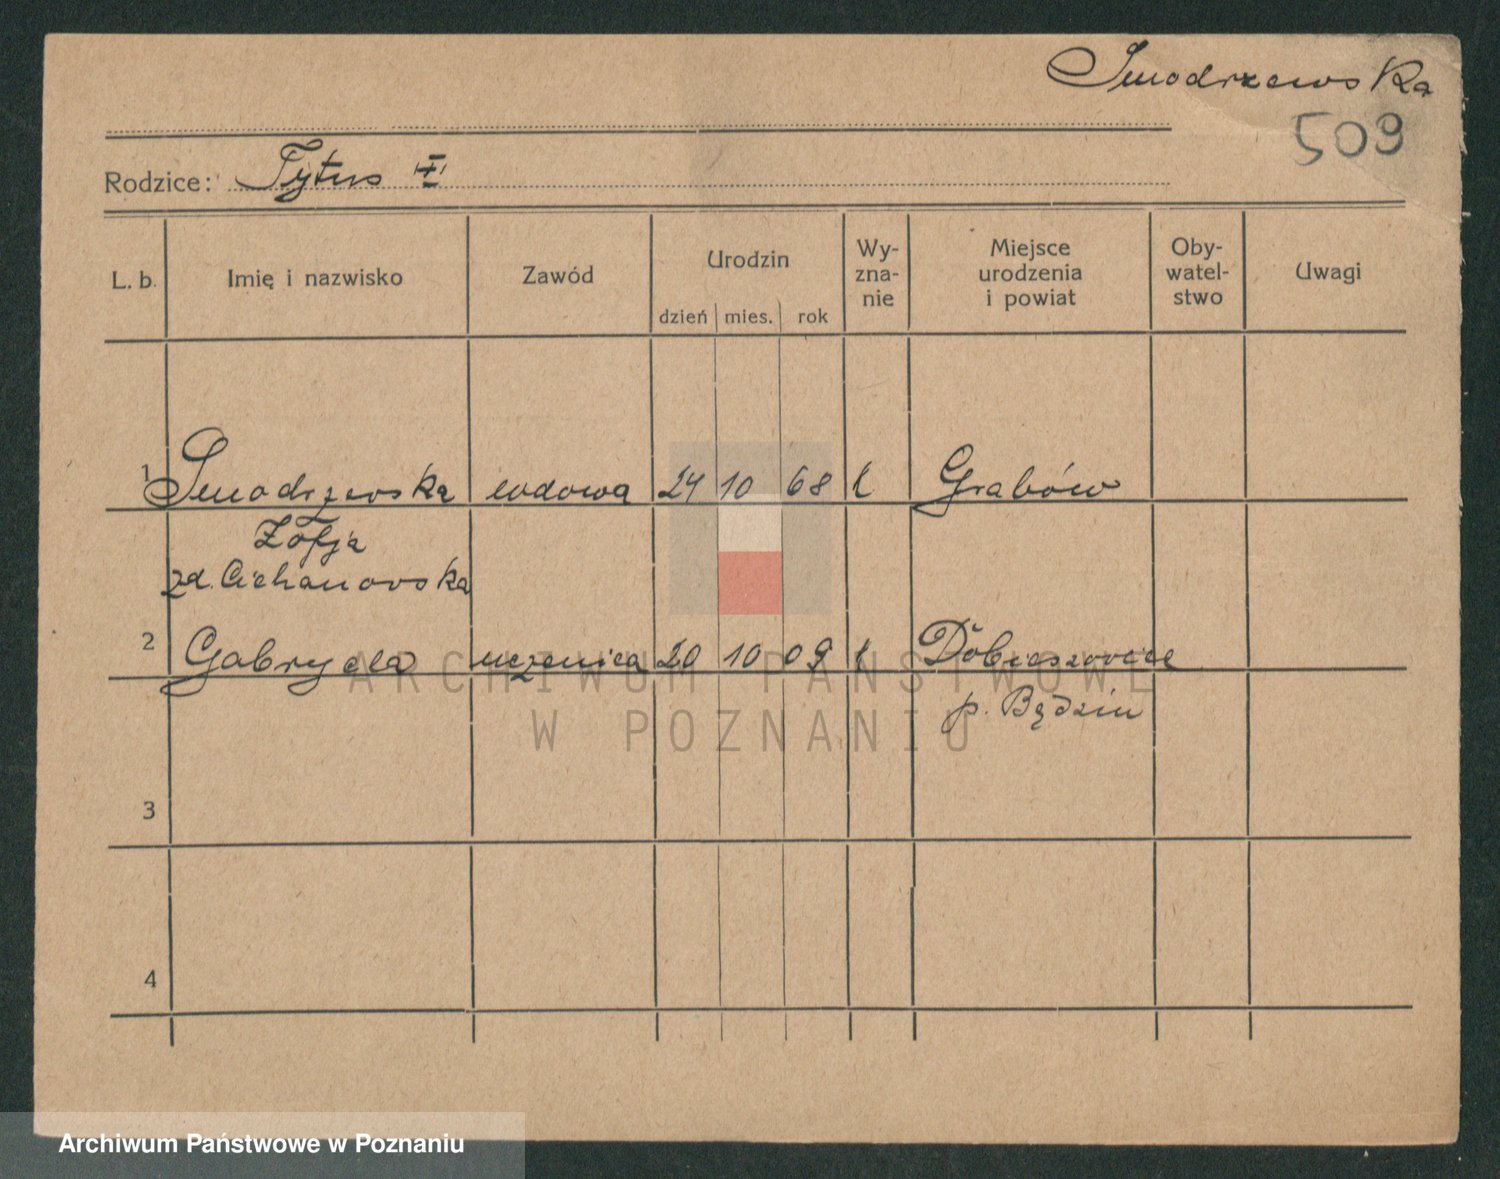 Smodrzewska
509
Rodzice: Tytus
L. b. Imię i nazwisko Zawód Urodzin dzień mies. rok Wy-zna-nie Miejsce urodzenia i powiat Oby-watel-stwo Uwagi
1 Smodrzewska wdowa 24 10 68 k Grabów
Zofja
zd. Cichanowska
2 Gabryela uczenica 20 10 09 k Dobieszowice
p. Będzin
3
4
ARCHIWUM PAŃSTWOWE
W POZNANIU
Archiwum Państwowe w Poznaniu